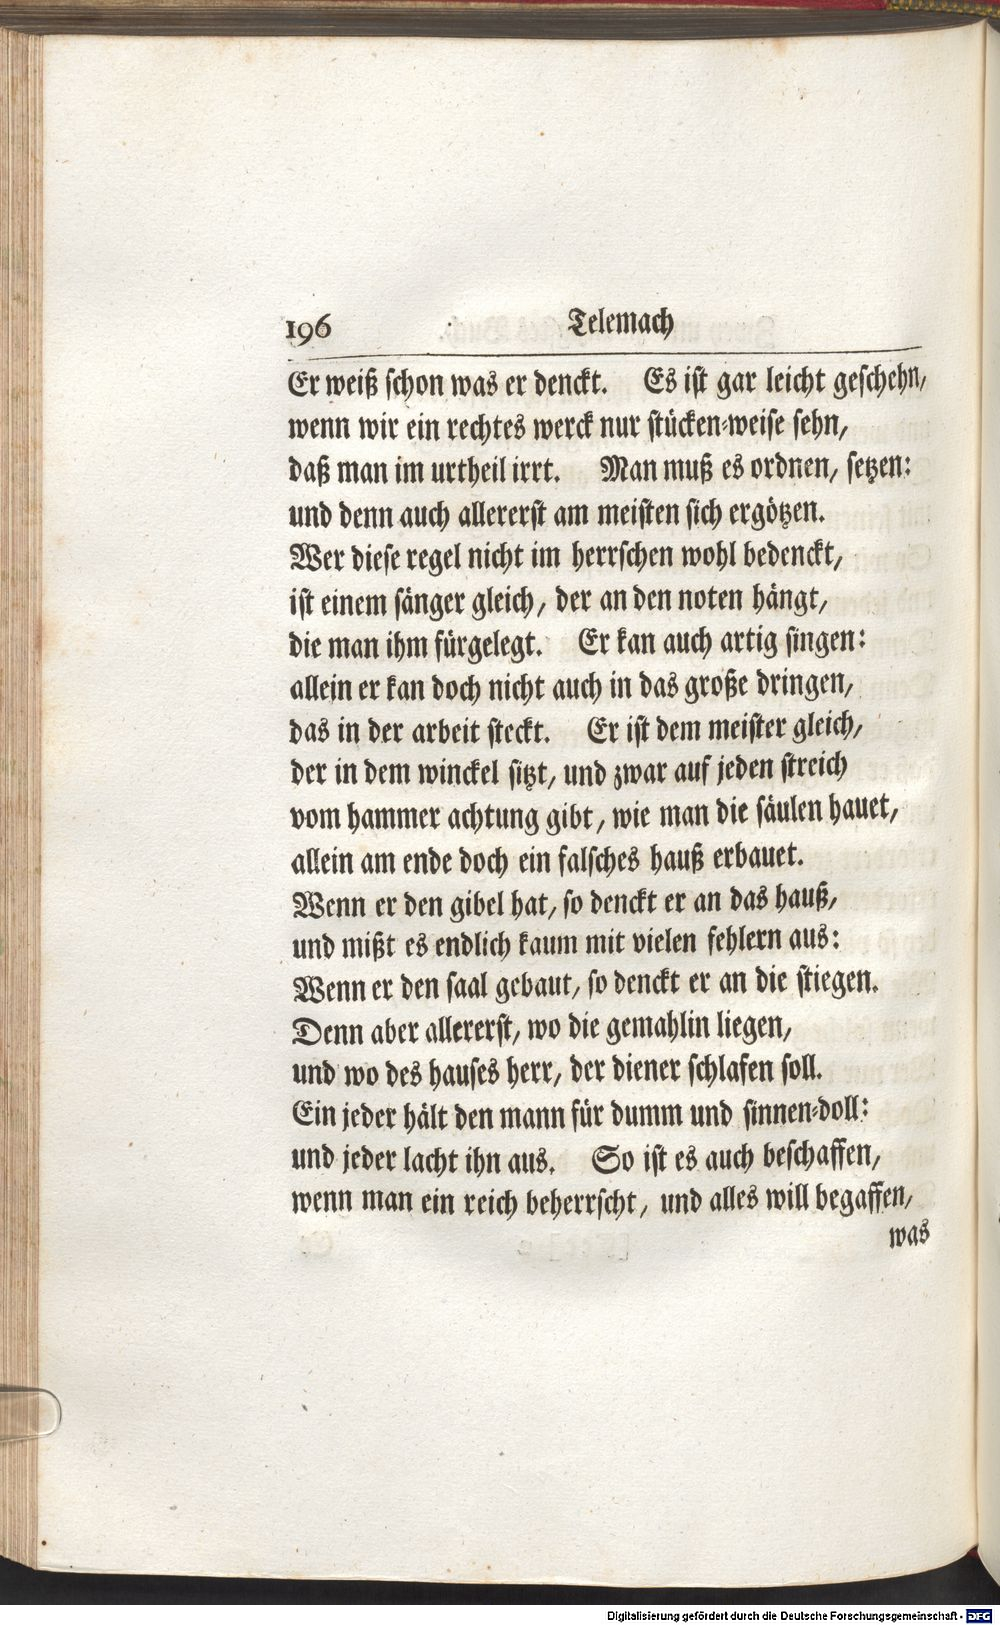 196 Telemach
Er weiß schon was er denckt. Es ist gar leicht geschehn,
wenn wir ein rechtes werck nur stücken-weise sehn,
daß man im urtheil irrt. Man muß es ordnen, setzen:
und denn auch allererst am meisten sich ergötzen.
Wer diese regel nicht im herrschen wohl bedenckt,
ist einem sänger gleich, der an den noten hängt,
die man ihm fürgelegt. Er kan auch artig singen:
allein er kan doch nicht auch in das große dringen,
das in der arbeit steckt. Er ist dem meister gleich,
der in dem winckel sitzt, und zwar auf jeden streich
vom hammer achtung gibt, wie man die säulen hauet,
allein am ende doch ein falsches hauß erbauet.
Wenn er den gibel hat, so denckt er an das hauß,
und mißt es endlich kaum mit vielen fehlern aus:
Wenn er den saal gebaut, so denckt er an die stiegen.
Denn aber allererst, wo die gemahlin liegen,
und wo des hauses herr, der diener schlafen soll.
Ein jeder hält den mann für dumm und sinnen-doll:
und jeder lacht ihn aus. So ist es auch beschaffen,
wenn man ein reich beherrscht, und alles will begaffen,
was
Digitalisierung gefördert durch die Deutsche Forschungsgemeinschaft - DFG